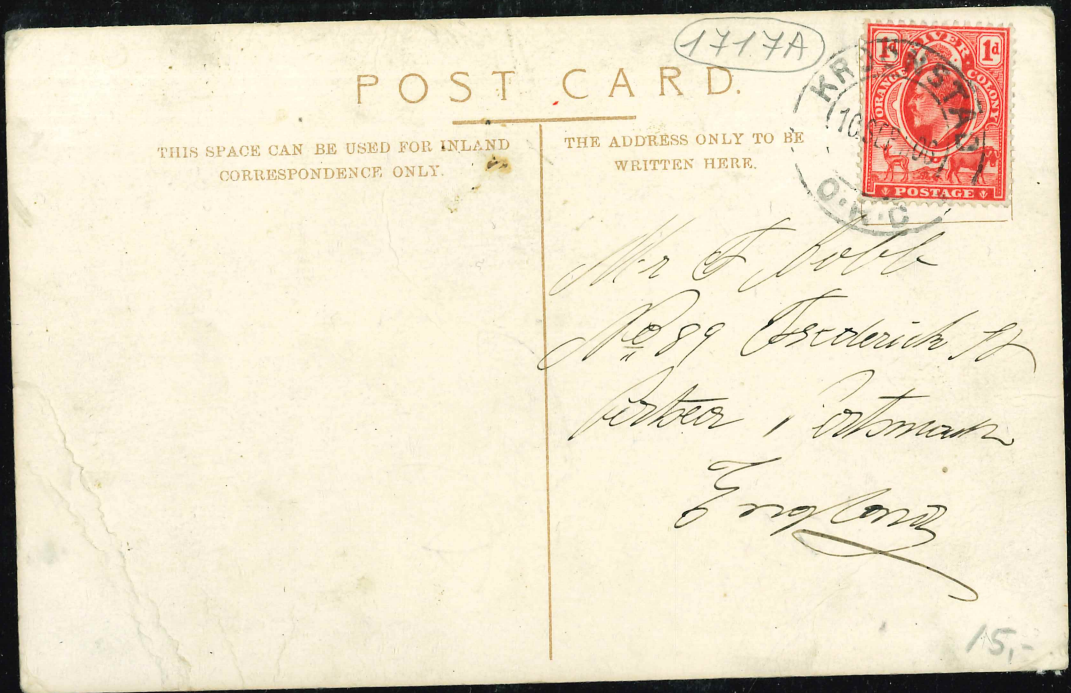 1717A
POST CARD.
THIS SPACE CAN BE USED FOR INLAND
CORRESPONDENCE ONLY.
THE ADDRESS ONLY TO BE
WRITTEN HERE.
1d 1d
ORANGE RIVER COLONY
POSTAGE
KROONSTAD
O.R.C
Mr F
No 89 Frederick St
Portsmouth
England
15,-